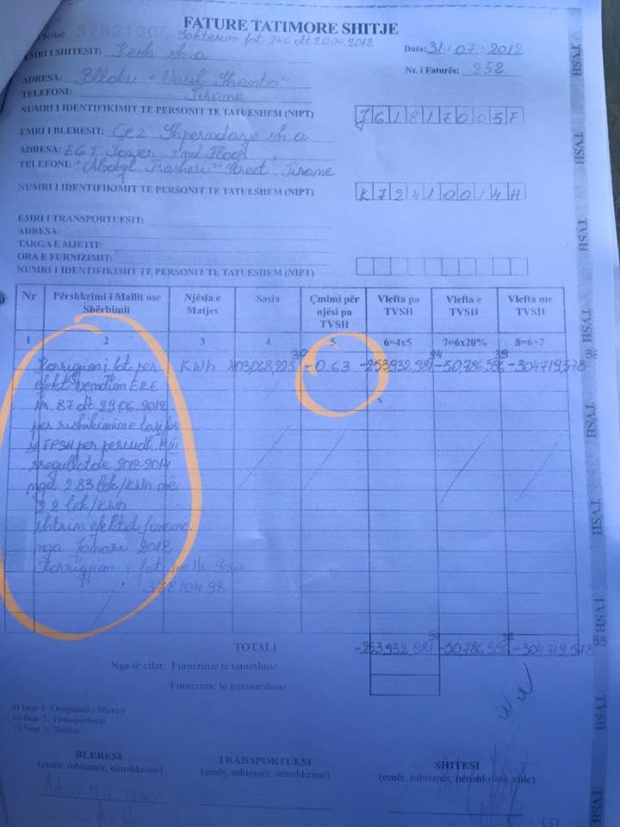 FATURE TATIMORE SHITJE
37821206 fat. 246 dt 20.04.2012
EMRI I SHITESIT: Kesh sh.a
Data: 31.07.2012
ADRESA: Blloku "Vasil Shanto"
Nr. i Faturës: 252
TELEFONI: Tirane
NUMRI I IDENTIFIKIMIT TE PERSONIT TE TATUESHEM (NIPT) J61817005F
EMRI I BLERESIT: Çez Shperndarje sh.a
ADRESA: EGT Tower 2nd Floor
TELEFONI: "Abdyl Frasheri" Street, Tirane
NUMRI I IDENTIFIKIMIT TE PERSONIT TE TATUESHEM (NIPT) K72410014H
EMRI I TRANSPORTUESIT:
ADRESA:
TARGA E MJETIT:
ORA E FURNIZIMIT:
NUMRI I IDENTIFIKIMIT TE PERSONIT TE TATUESHEM (NIPT)
Nr Përshkrimi i Mallit ose Shërbimit Njësia e Matjes Sasia Çmimi për njësi pa TVSH Vlefta pa TVSH Vlefta e TVSH Vlefta me TVSH
1 2 3 4 5 6=4x5 7=6x20% 8=6+7
Korrigjim i fat per KWh 403,068,225 -0.63 -253,932,981 -50,786,596 -304,719,578
efekt vendim ERE
nr. 87 dt 29.06.2012
per rishikimin
EPSH per periudh
rregullatore 2012-2014
nga 2.83 lek/kWh ne
2.2 lek/kWh
shtrim efektet financ
nga Janari 2012
Korrigjim i fat me Nr Serie
37810498
TOTALI -253,932,981 -50,786,596 -304,719,578
Nga të cilat: Furnizime të tatueshme
Furnizime të patatueshme
a) fage 1. Origjinali - Blerësi
b) fage 2. Transportuesi
c) fage 3. Shitësi
BLERESI
(emër, mbiemër, nënshkrimi)
TRANSPORTUESI
(emër, mbiemër, nënshkrimi)
SHITESI
(emër, mbiemër, nënshkrimi, vule)
TVSH
TVSH
TVSH
TVSH
TVSH
TVSH
TVSH
TVSH
TVSH